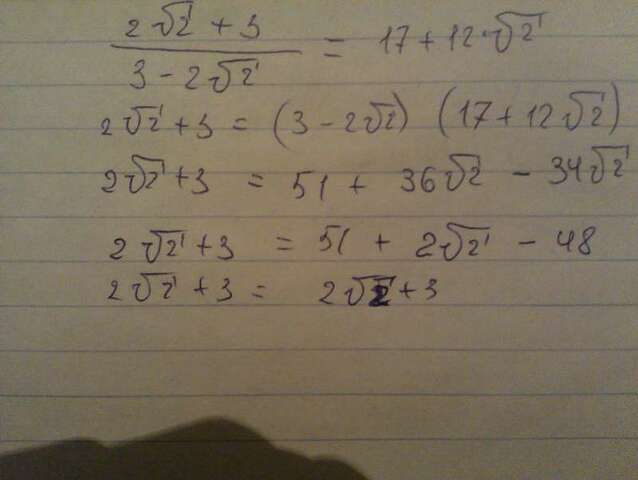 (2√2 + 3)/(3 - 2√2) = 17 + 12·√2
2√2 + 3 = (3 - 2√2) (17 + 12√2)
2√2 + 3 = 51 + 36√2 - 34√2
2√2 + 3 = 51 + 2√2 - 48
2√2 + 3 = 2√2 + 3